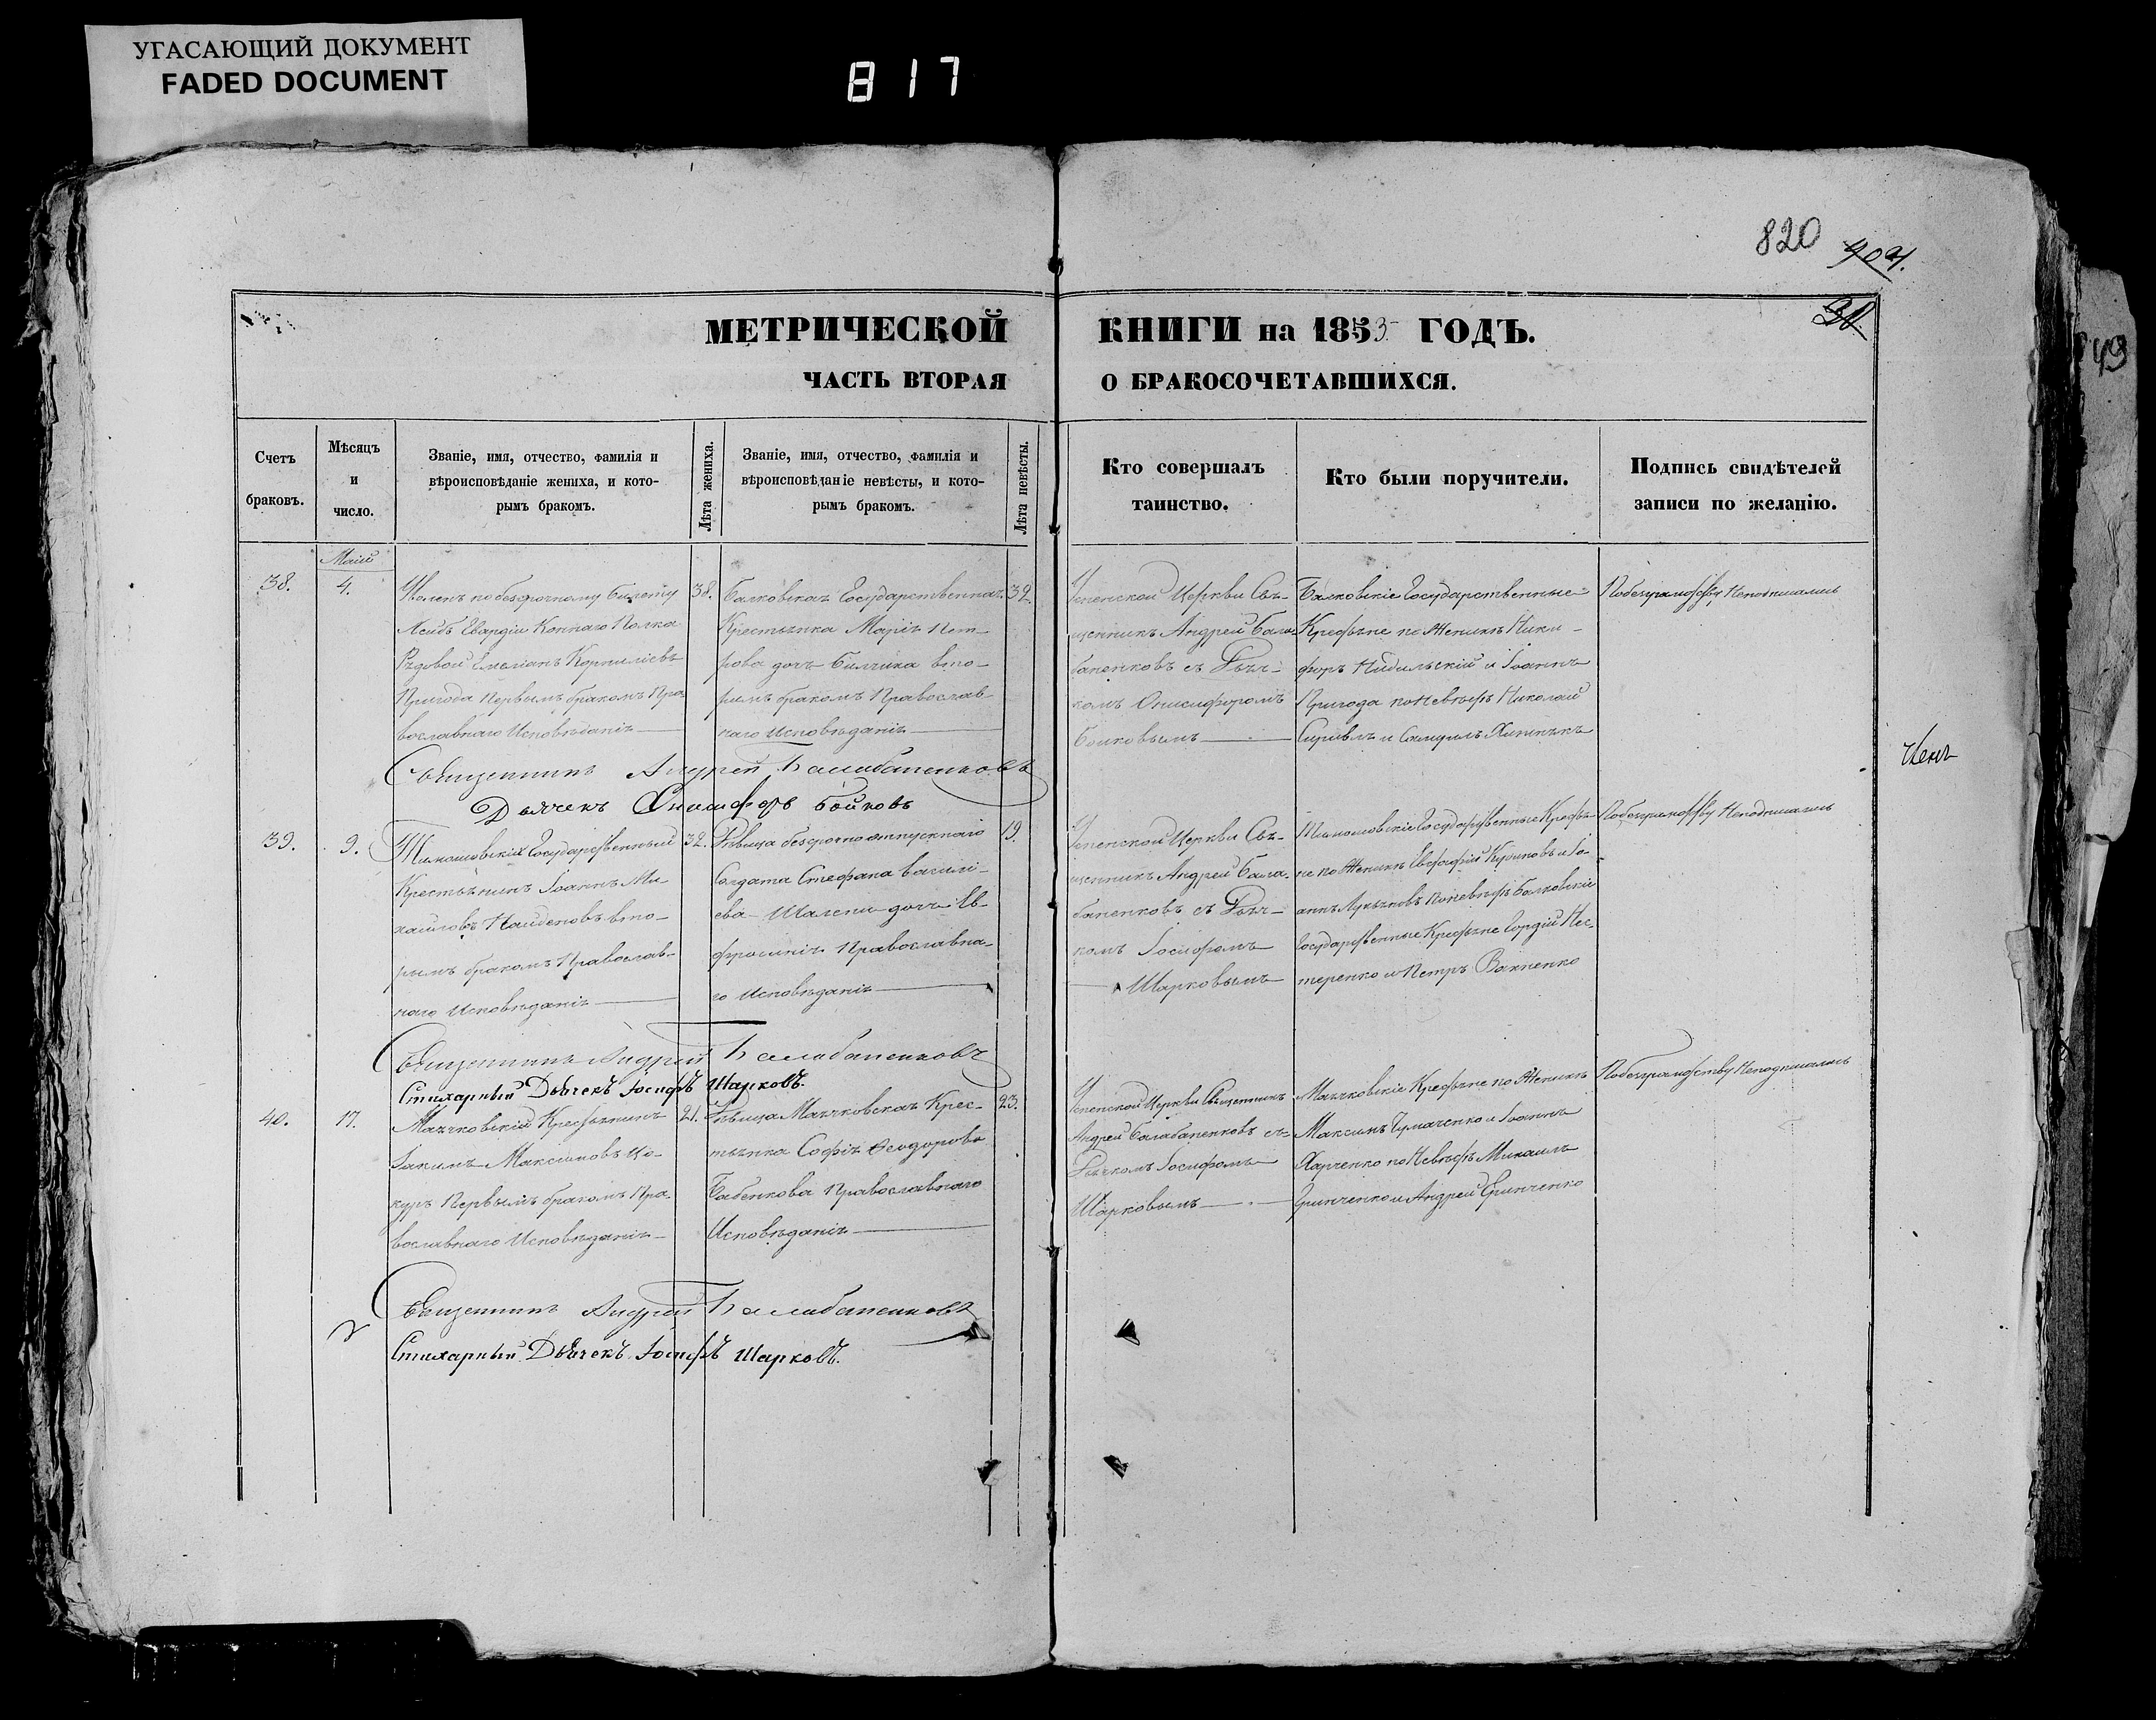 УГАСАЮЩИЙ ДОКУМЕНТ
FADED DOCUMENT
817
820
МЕТРИЧЕСКОЙ КНИГИ на 1853 ГОДЪ.
ЧАСТЬ ВТОРАЯ О БРАКОСОЧЕТАВШИХСЯ.
Счетъ
браковъ.
Мѣсяцъ
и
число.
Званіе, имя, отчество, фамилія и
вѣроисповѣданіе жениха, и кото-
рымъ бракомъ.
Лѣта жениха.
Званіе, имя, отчество, фамилія и
вѣроисповѣданіе невѣсты, и кото-
рымъ бракомъ.
Лѣта невѣсты.
Кто совершалъ
таинство.
Кто были поручители.
Подпись свидѣтелей
записи по желанію.
Маій
38.
4.
Уволенъ по безсрочному билету
Лейбъ Гвардіи Коннаго Полка
Рядовой Емеліанъ Корниліевъ
Пригода Первымъ бракомъ Пра-
вославнаго Исповѣданія
38.
Балковская Государственная
Крестьянка Марія Пет-
рова дочь Билчика вто-
рымъ бракомъ Православ-
наго Исповѣданія
32.
Успенской Церкви Свя-
щенникъ Андрей Бала-
баненковъ съ Дьяч-
комъ Онисифоромъ
Бойковымъ
Балковскіе Государственные
Крестьяне по Женихѣ Ники-
форъ и Іоаннъ
Пригода по Невѣстѣ Николай
и Самуилъ
По безграмотству Неподписались
Священникъ Андрей Балабаненковъ
Дьячекъ Онисифоръ Бойковъ
39.
9.
Тимошовскій Государственный
Крестьянинъ Іоаннъ Ми-
хайловъ Найденовъ вто-
рымъ бракомъ Православ-
наго Исповѣданія
32.
Дѣвица безсрочно отпускнаго
Солдата Стефана Василі-
ева Шалени дочь Ев-
фросинія Православна-
го Исповѣданія
19.
Успенской Церкви Свя-
щенникъ Андрей Бала-
баненковъ съ Дьяч-
комъ Іосифомъ
Шарковымъ
Тимошовскіе Государственные Крестья-
не по Женихѣ Евстафій и Іо-
аннъ Лукьяновъ По невѣстѣ Балковскіе
Государственные Крестьяне Гордій Нес-
теренко и Петръ
По безграмотству Неподписались
Священникъ Андрей Балабаненковъ
Стихарный Дьячекъ Іосифъ Шарковъ.
40.
17.
Маячковскій Крестьянинъ
Іакимъ Максимовъ Цо-
куръ Первымъ бракомъ Пра-
вославнаго Исповѣданія
21.
Дѣвица Маячковская Крес-
тьянка Софія Ѳеодорова
Бабенкова Православнаго
Исповѣданія
23.
Успенской Церкви Священникъ
Андрей Балабаненковъ съ
Дьячкомъ Іосифомъ
Шарковымъ
Маячковскіе Крестьяне по Женихѣ
Максимъ Чумаченко и Іоаннъ
Харченко по Невѣстѣ Михаилъ
Гринченко и Андрей Гринченко
По безграмотству Неподписались
Священникъ Андрей Балабаненковъ
Стихарный Дьячекъ Іосифъ Шарковъ.